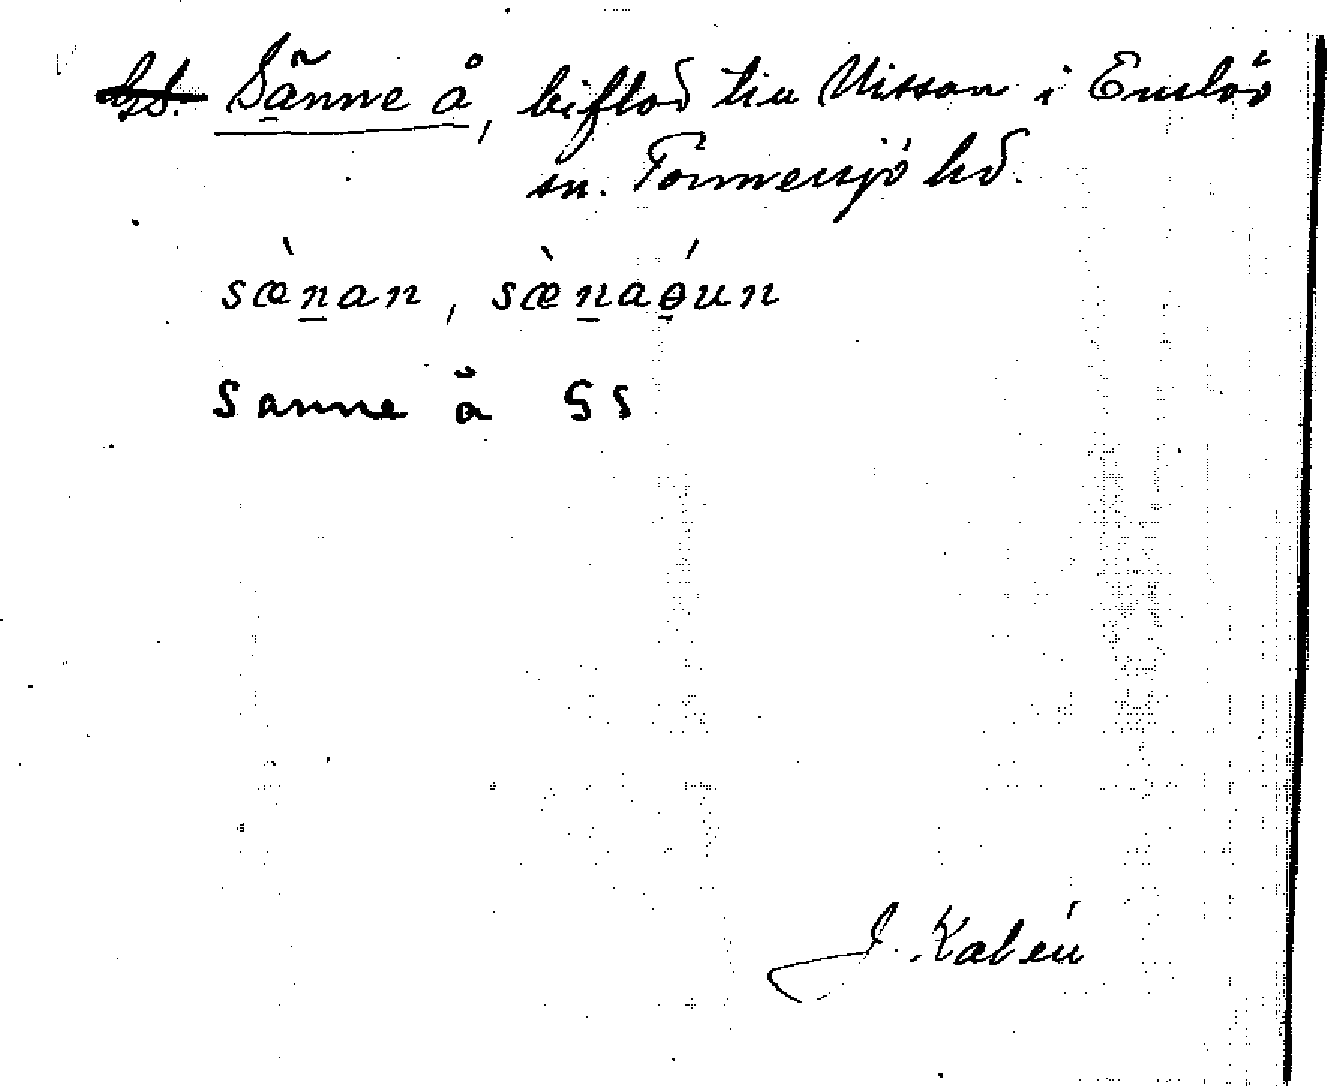 Sänne å, biflod till Nissan i Enslöv
sn. Tönnersjö hd.
sænan, sænaɵun
Sanne å GS
J. Kalén